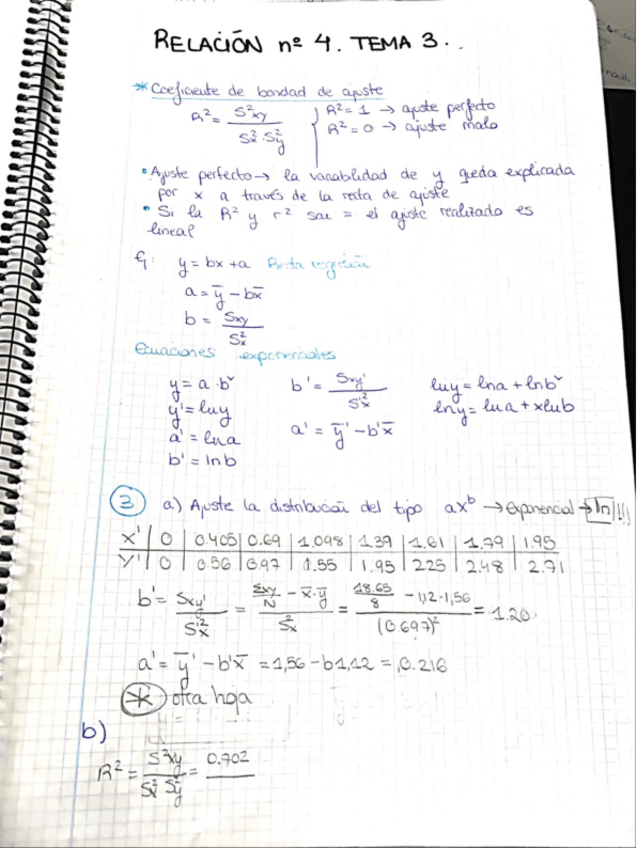 RELACIÓN nº 4. TEMA 3..
* Coeficiente de bondad de ajuste
R² = S²xy / S²x · S²y
R² = 1 → ajuste perfecto
R² = 0 → ajuste malo
• Ajuste perfecto → la variabilidad de y queda explicada
por x a través de la recta de ajuste
• Si la R² y r² sale = el ajuste realizado es
lineal
y = bx + a Recta regresión
a = ȳ - bx̄
b = Sxy / S²x
Ecuaciones exponenciales
y = a · bˣ b' = Sxy' / S'²x lny = lna + lnbˣ
y' = lny lny = lna + xlnb
a' = lna a' = ȳ' - b'x̄
b' = lnb
3 a) Ajuste la distribución del tipo axᵇ → exponencial → ln !!!
X' 0 0.405 0.69 1.098 1.39 1.61 1.79 1.95
Y' 0 0.56 0.97 1.55 1.95 2.25 2.48 2.71
b' = Sxy' / S'²x = (Σxy / N - x̄ · ȳ) / S²x = (18.65 / 8 - 1,12 · 1,56) / (0.697)² = 1.20
a' = ȳ' - b'x̄ = 1,56 - b1,12 = 0.216
* otra hoja
b)
R² = S²xy / S²x S²y = 0.702